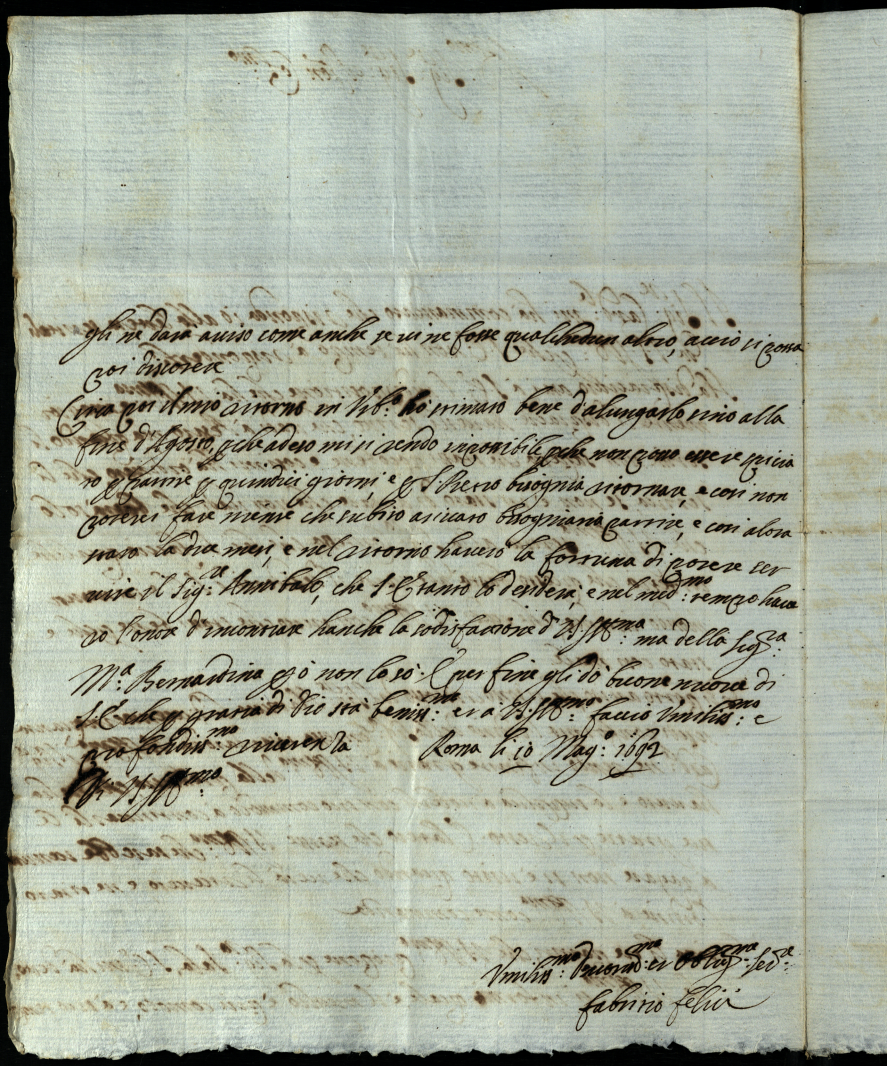 gli ne darà aviso come anche se vi ne fosse qualchedun altro, acciò si possa
poi discorere
Circa poi il mio ritorno in Urb.º hò stimato bene d'alungarlo sino alla
fine d'Agosto, perche adeso mi si rendo inposibile perche non posso essere
ro p partire p quindici giorni, e p S. Pietro bisognia ritornare, e cosi non
poterei fare niente che subito arivato bisogniaria partire, e cosi alora
starò la due mesi, e nel ritorno haverò la fortuna di potere ser
vire il Sig.re Annibale, che S. E. tanto lo desidera, e nel med.mo tempo have
rò l'onor d'incontrare hanche la sodisfazione d' V.S. Ill.ma ma della Sig.ra
M.a Bernardina però non lo sò. E per fine gli dò buone nuove di
S. E. che p gratia di Dio stà beniss.mo et à V.S. Ill.ma faccio Umiliss.mo e
profondiss.mo riverenza Roma li 10 Mag.º 1692
Di V.S. Ill.ma
Umiliss.mo Devotiss.mo et Oblig.mo Ser.re
Fabritio Felici